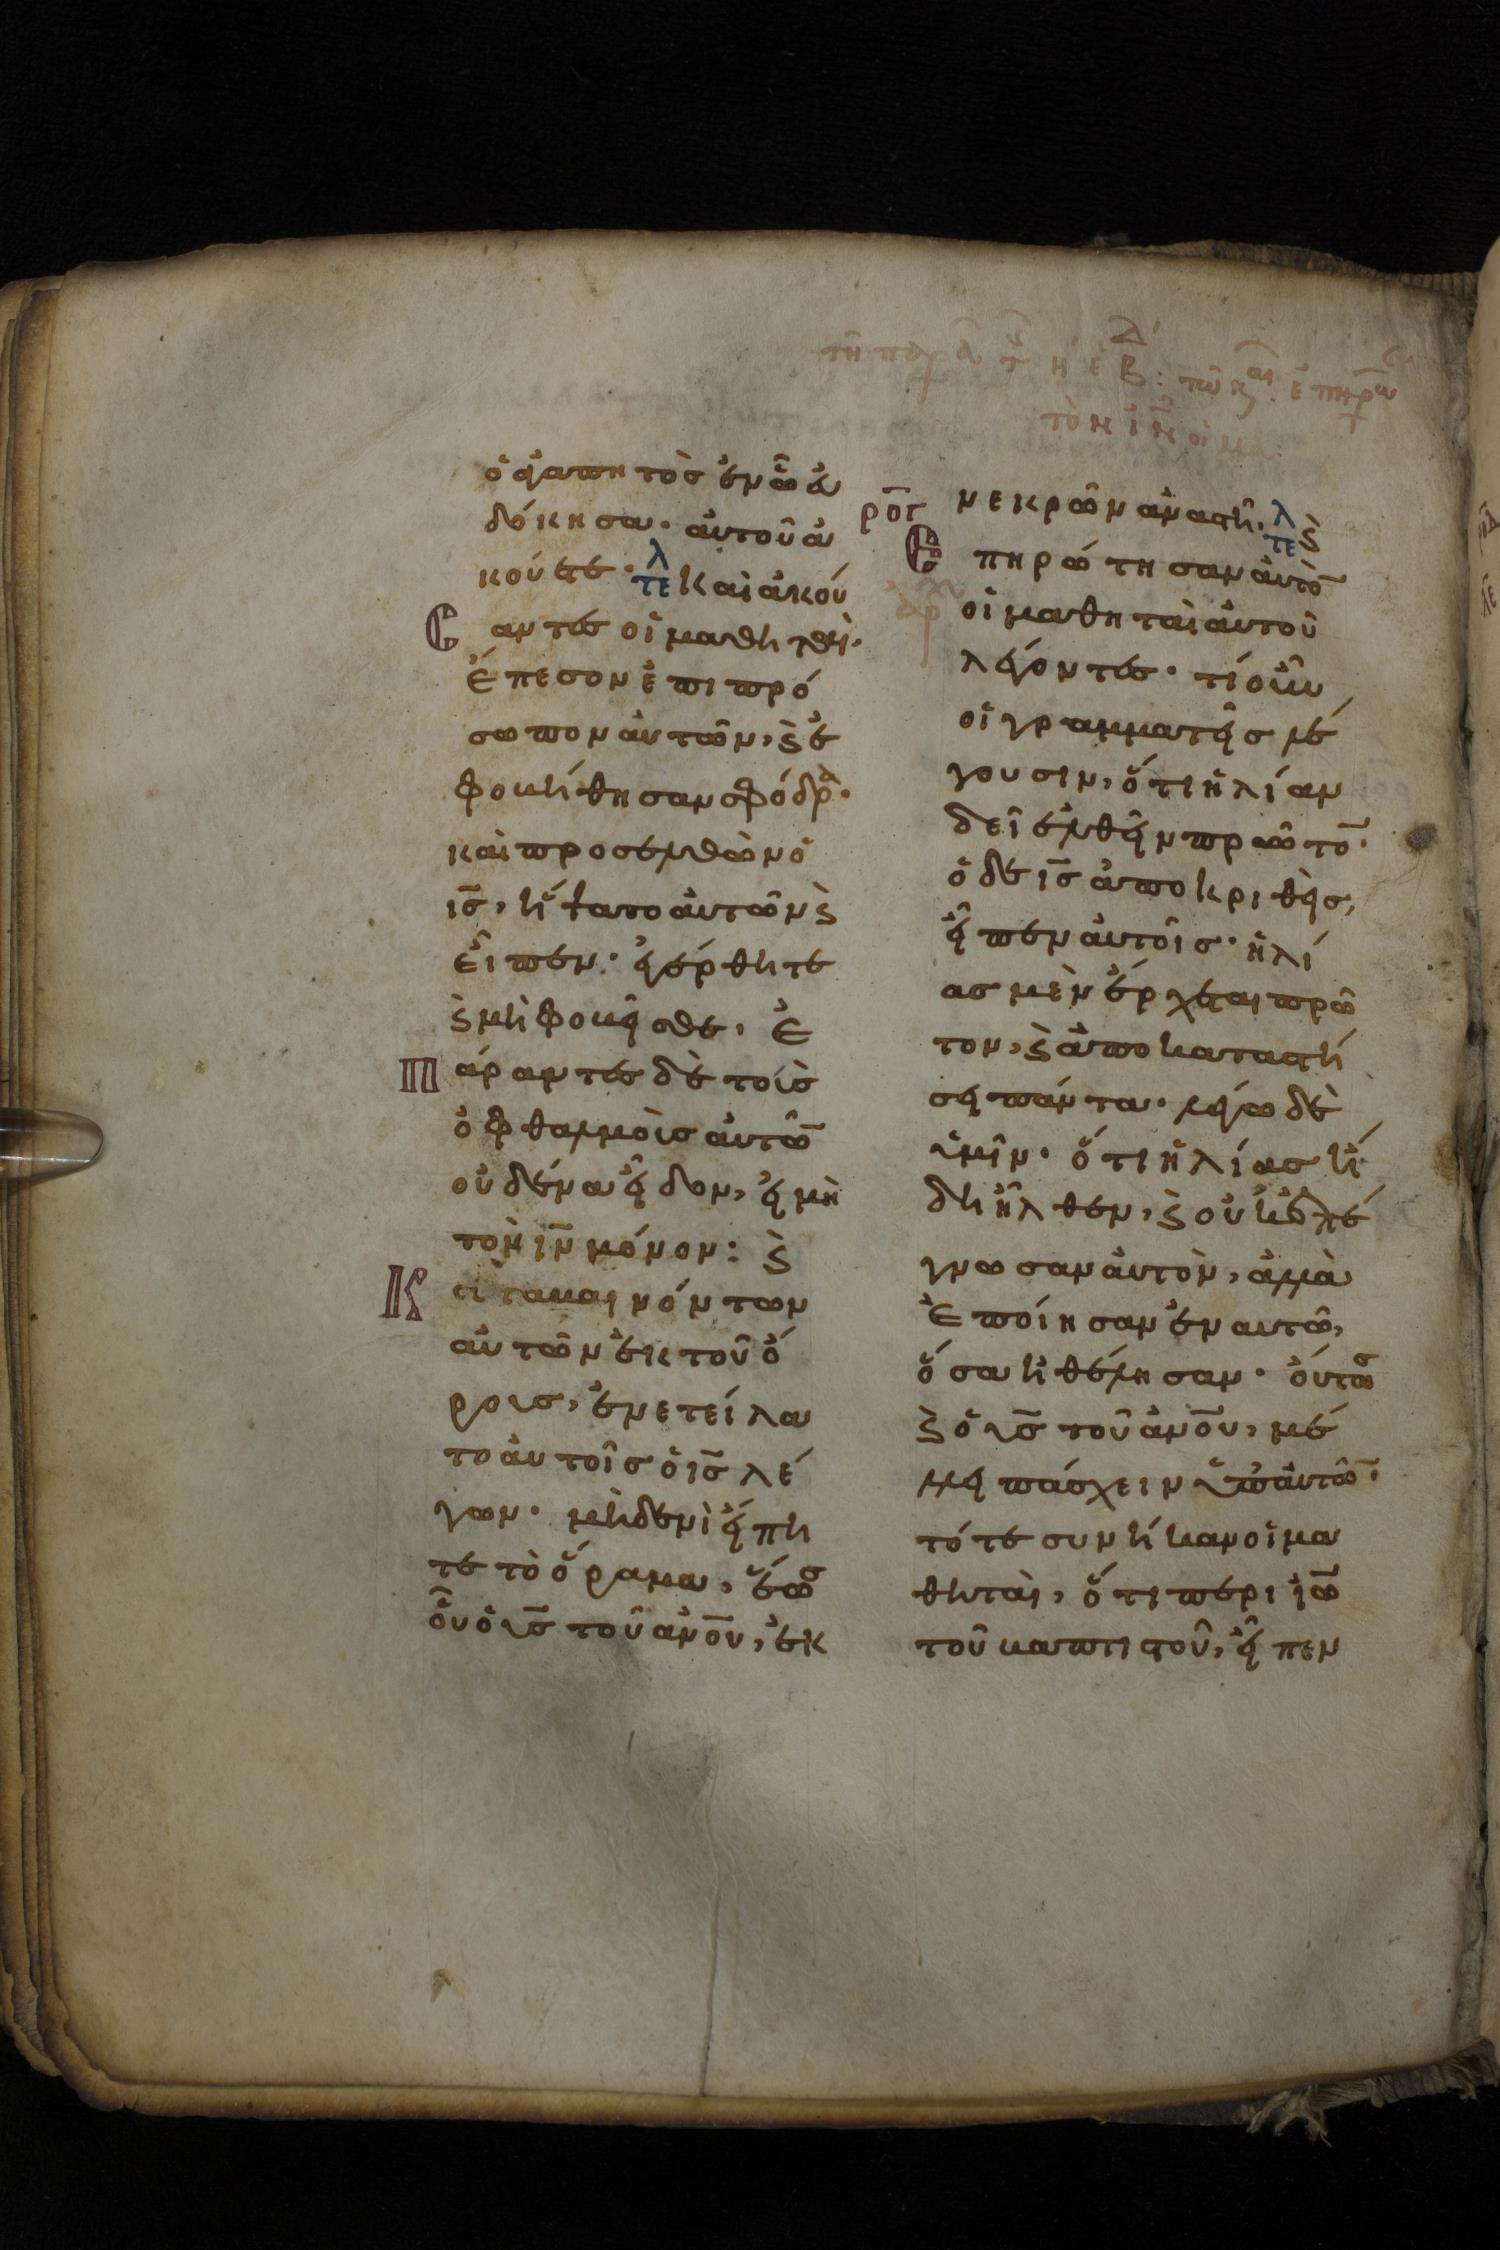 τῆ παρα τ η ε Β: τω κ αι ἐπηρω
τὸν ἰν οἱ μα
ὁ ἀγαπητὸς ἐν ᾧ εὐ
δόκησα· αὐτοῦ ἀ
κούετε· τελ καὶ ἀκού
σαντες οἱ μαθηταὶ·
ἔπεσον ἐπι πρό
σωπον αὐτῶν, ϗ ἐ
φοβήθησαν σφόδρα·
καὶ προσελθὼν ὁ
ις̅, ἥψατο αὐτῶν ϗ
εἶπεν· ἐγέρθητε
ϗ μὴ φοβεῖσθε, Ἐ
πάραντες δὲ τοὺς
ὀφθαλμοὺς αὐτῶ̅
οὐδένα εἶδον, εἰ μὴ
τὸν ιν̅ μόνον: ϗ
Κ αταβαινόντων
αὐτῶν ἐκ τοῦ ὄ
ρους, ἐνετείλα
το αὐτοῖς ὁ ις̅ λέ
γων· μὴδενὶ εἴπη
τε τὸ ὅραμα, ἕως
οὗ ὁ υς̅ τοῦ ἀνο̅υ, ἐκ
ρο̅γ νεκρῶν ἀναστῆ· τελ ϗ
Ε πηρώτησαν αὐτὸ̅
ἀρχ οἱ μαθηταὶ αὐτοῦ
λέγοντες· τί οὖν
οἱ γραμματεῖς λέ
γουσιν, ὅτι ἠλίαν
δεῖ ἐλθεῖν πρῶτο̅·
ὁ δὲ ις̅ ἀποκριθεὶς,
εἶπεν αὐτοῖς· ἠλί
ας μὲν ἔρχεται πρῶ
τον, ϗ ἀποκαταστή
σει πάντα· λέγω δὲ
ὑμῖν· ὅτι ἠλίας ἤ
δη ἦλθεν, ϗ οὐκ ἐπέ
γνωσαν αὐτὸν, ἀλλὰ
ἐποίησαν ἐν αυτῶ,
ὅσα ἠθέλησαν· οὕτως
ϗ ὁ υς̅ τοῦ ἀνο̅υ, μέ
λλει πάσχειν ὑπ' αὐτῶ̅·
τότε συνήκαν οἱ μα
θηταὶ, ὅτι περι ἰω̅
τοῦ βαπτιστοῦ, εἶπεν